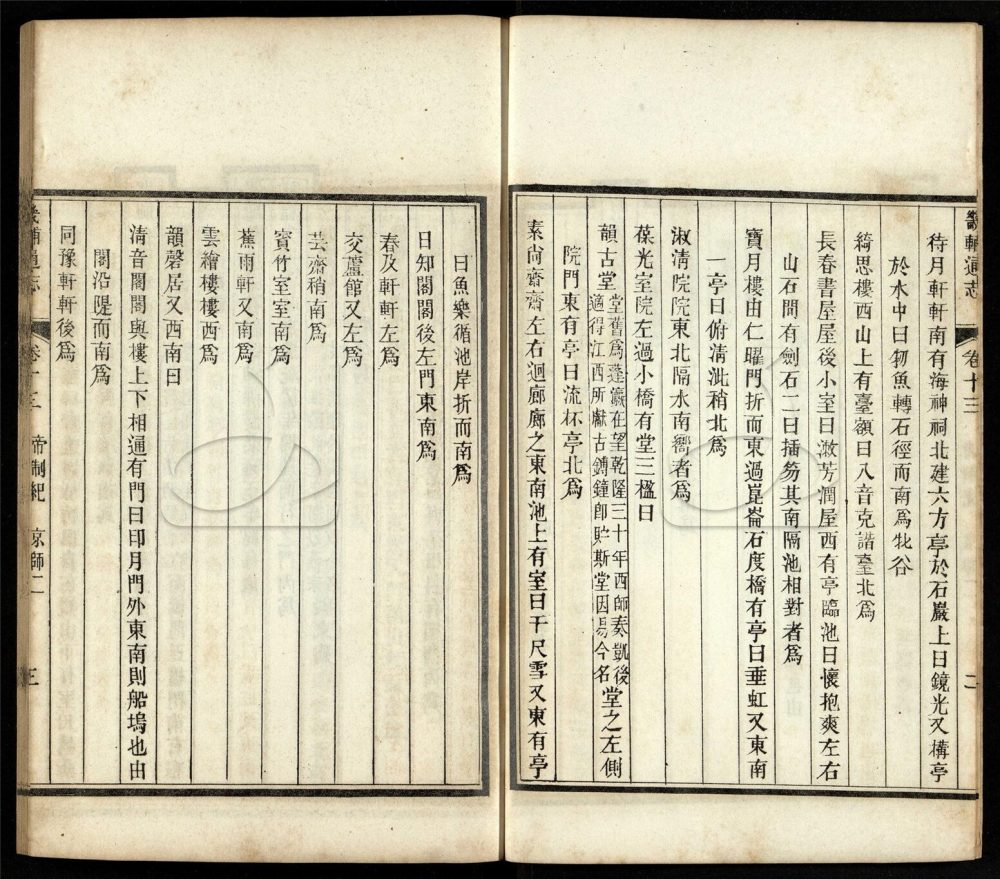 畿輔通志 卷十三 二
待月軒軒南有海神祠北建六方亭於石巖上曰鏡光又構亭
於水中曰牣魚轉石徑而南爲牝谷
綺思樓西山上有臺額曰八音克諧臺北爲
長春書屋屋後小室曰漱芳潤屋西有亭臨池曰懷抱爽左右
山石間有劍石二曰插笏其南隔池相對者爲
寶月樓由仁曜門折而東過崑崙石度橋有亭曰垂虹又東南
一亭曰俯清泚稍北爲
淑清院院東北隔水南嚮者爲
葆光室院左過小橋有堂三楹曰
韻古堂堂舊爲蓬瀛在望乾隆三十年西師奏凱後
適得江西所獻古鎛鐘卽貯斯堂因易今名堂之左側
院門東有亭曰流杯亭北爲
素尚齋齋左右迴廊廊之東南池上有室曰千尺雪又東有亭
曰魚樂循池岸折而南爲
日知閣閣後左門東南爲
春及軒軒左爲
交蘆館又左爲
芸齋稍南爲
賓竹室室南爲
蕉雨軒又南爲
雲繪樓樓西爲
韻磬居又西南曰
清音閣閣與樓上下相通有門曰印月門外東南則船塢也由
閣沿隄而南爲
同豫軒軒後爲
畿輔通志 卷十三 帝制紀 京師二 三